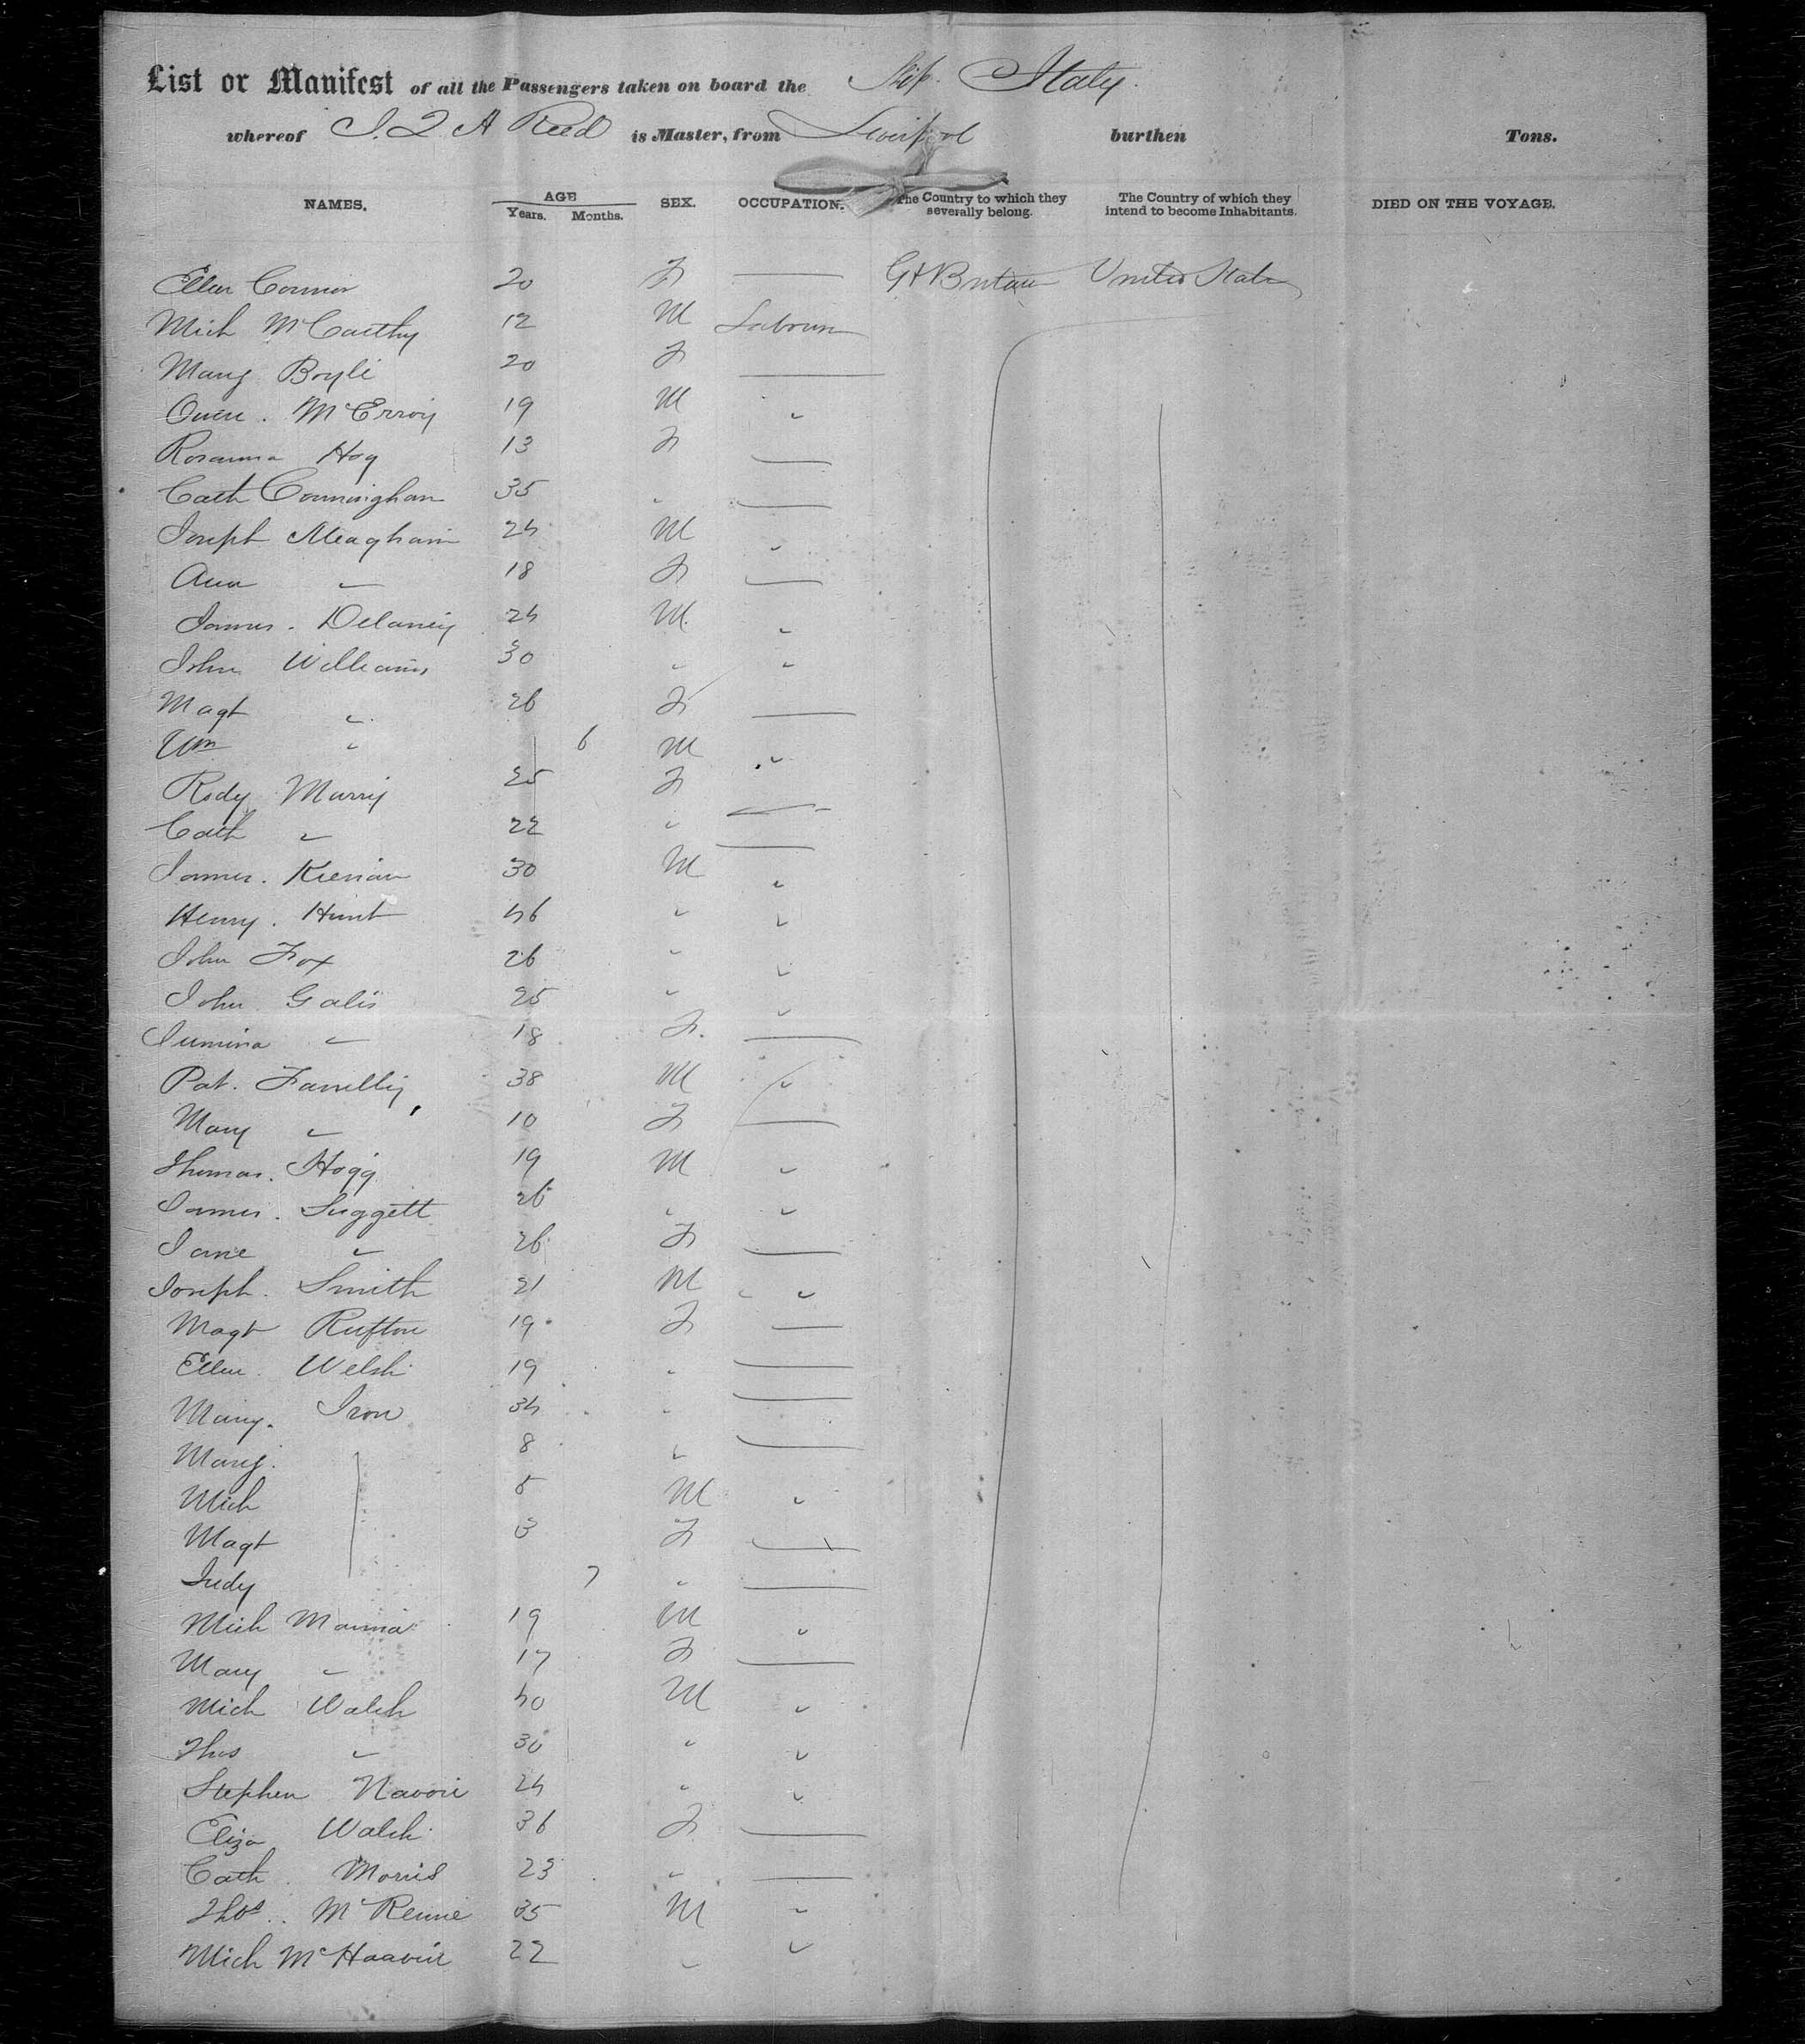 List or Manifest of all the Passengers taken on board the Ship Italy.
whereof J. Q A Reed is Master, from Liverpool burthen Tons.
NAMES. AGE Years. Months. SEX. OCCUPATION. The Country to which they severally belong. The Country of which they intend to become Inhabitants. DIED ON THE VOYAGE.
Ellen Connor 20 F — Gt Britain United States
Mich McCarthy 12 M Labourer
Marg Boyle 20 F —
Owen. McErroy 19 M "
Rosanna Hog 13 F —
Cath Conningham 35 " —
Joseph Meagham 24 M "
Ann " 18 F —
James. Delaney 24 M. "
John Williams 30 " "
Magt " 26 F —
Wm " 6 M "
Rody Murry 25 F —
Cath " 22 " —
James. Kiernan 30 M "
Henry. Hunt 46 " "
John Fox 26 " "
John Galis 25 " "
Jemima " 18 F. —
Pat. Farrelly 38 M "
Mary " 10 F —
Thomas. Hogg 19 M "
James. Suggett 26 " "
Jane " 26 F —
Joseph. Smith 21 M "
Magt Rufton 19 F —
Ellen. Welsh 19 " —
Mary. Iron 34 " —
Mary. 8 " —
Mich 5 M "
Magt 3 F —
Judy 7 " —
Mich Manna 19 M "
Mary " 17 F —
Mich Walsh 40 M "
Thos " 30 " "
Stephen 24 " "
Eliza Walsh 36 F —
Cath. Morris 23 " —
Thos. McRennie 35 M "
Mich 22 " "